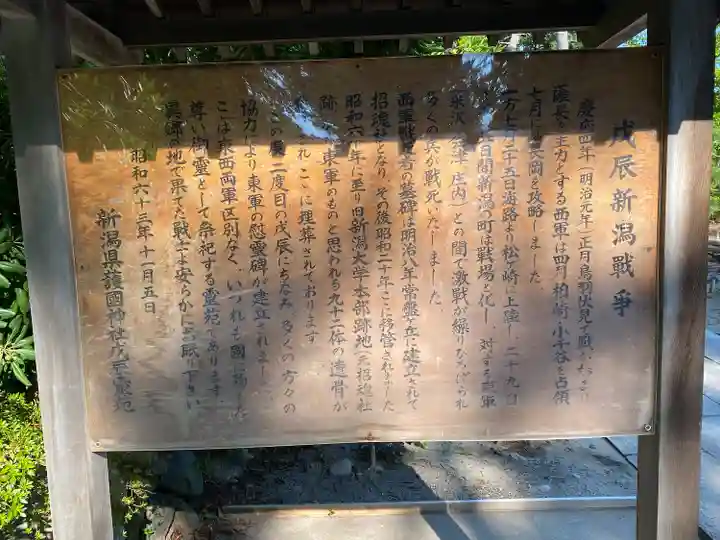 戊辰新潟戰爭
慶応四年(明治元年)正月鳥羽伏見で戦が
薩長を主力とする西軍は四月、柏崎、小千谷を占領
七月に長岡を攻略しました
一方七月二十五日海路より松ヶ崎に上陸し、二十九日
日間新潟の町は戦場と化し、対する東軍
米沢、会津、庄内との間で激戦が繰りひろげられ
多くの兵が戦死いたしました。
西軍戦死者の墓碑は明治八年常盤ヶ丘に建立されて
招魂社となり、その後昭和二十年ここに移営されました
昭和六十年に至り旧新潟大学本部跡地(元招魂社
跡)東軍のものと思われる九十二体の遺骨が
され、ここに埋葬されております
この二度目の戊辰にちなみ、多くの方々の
協力により東軍の慰霊碑が建立されまし
ここは東西両軍区別なく、いづれも國に
尊い御霊として祭祀する霊苑であります。
異郷の地で果てた戦士よ安らかにお眠り下さい
昭和六十三年十一月五日
新潟県護國神社戊辰